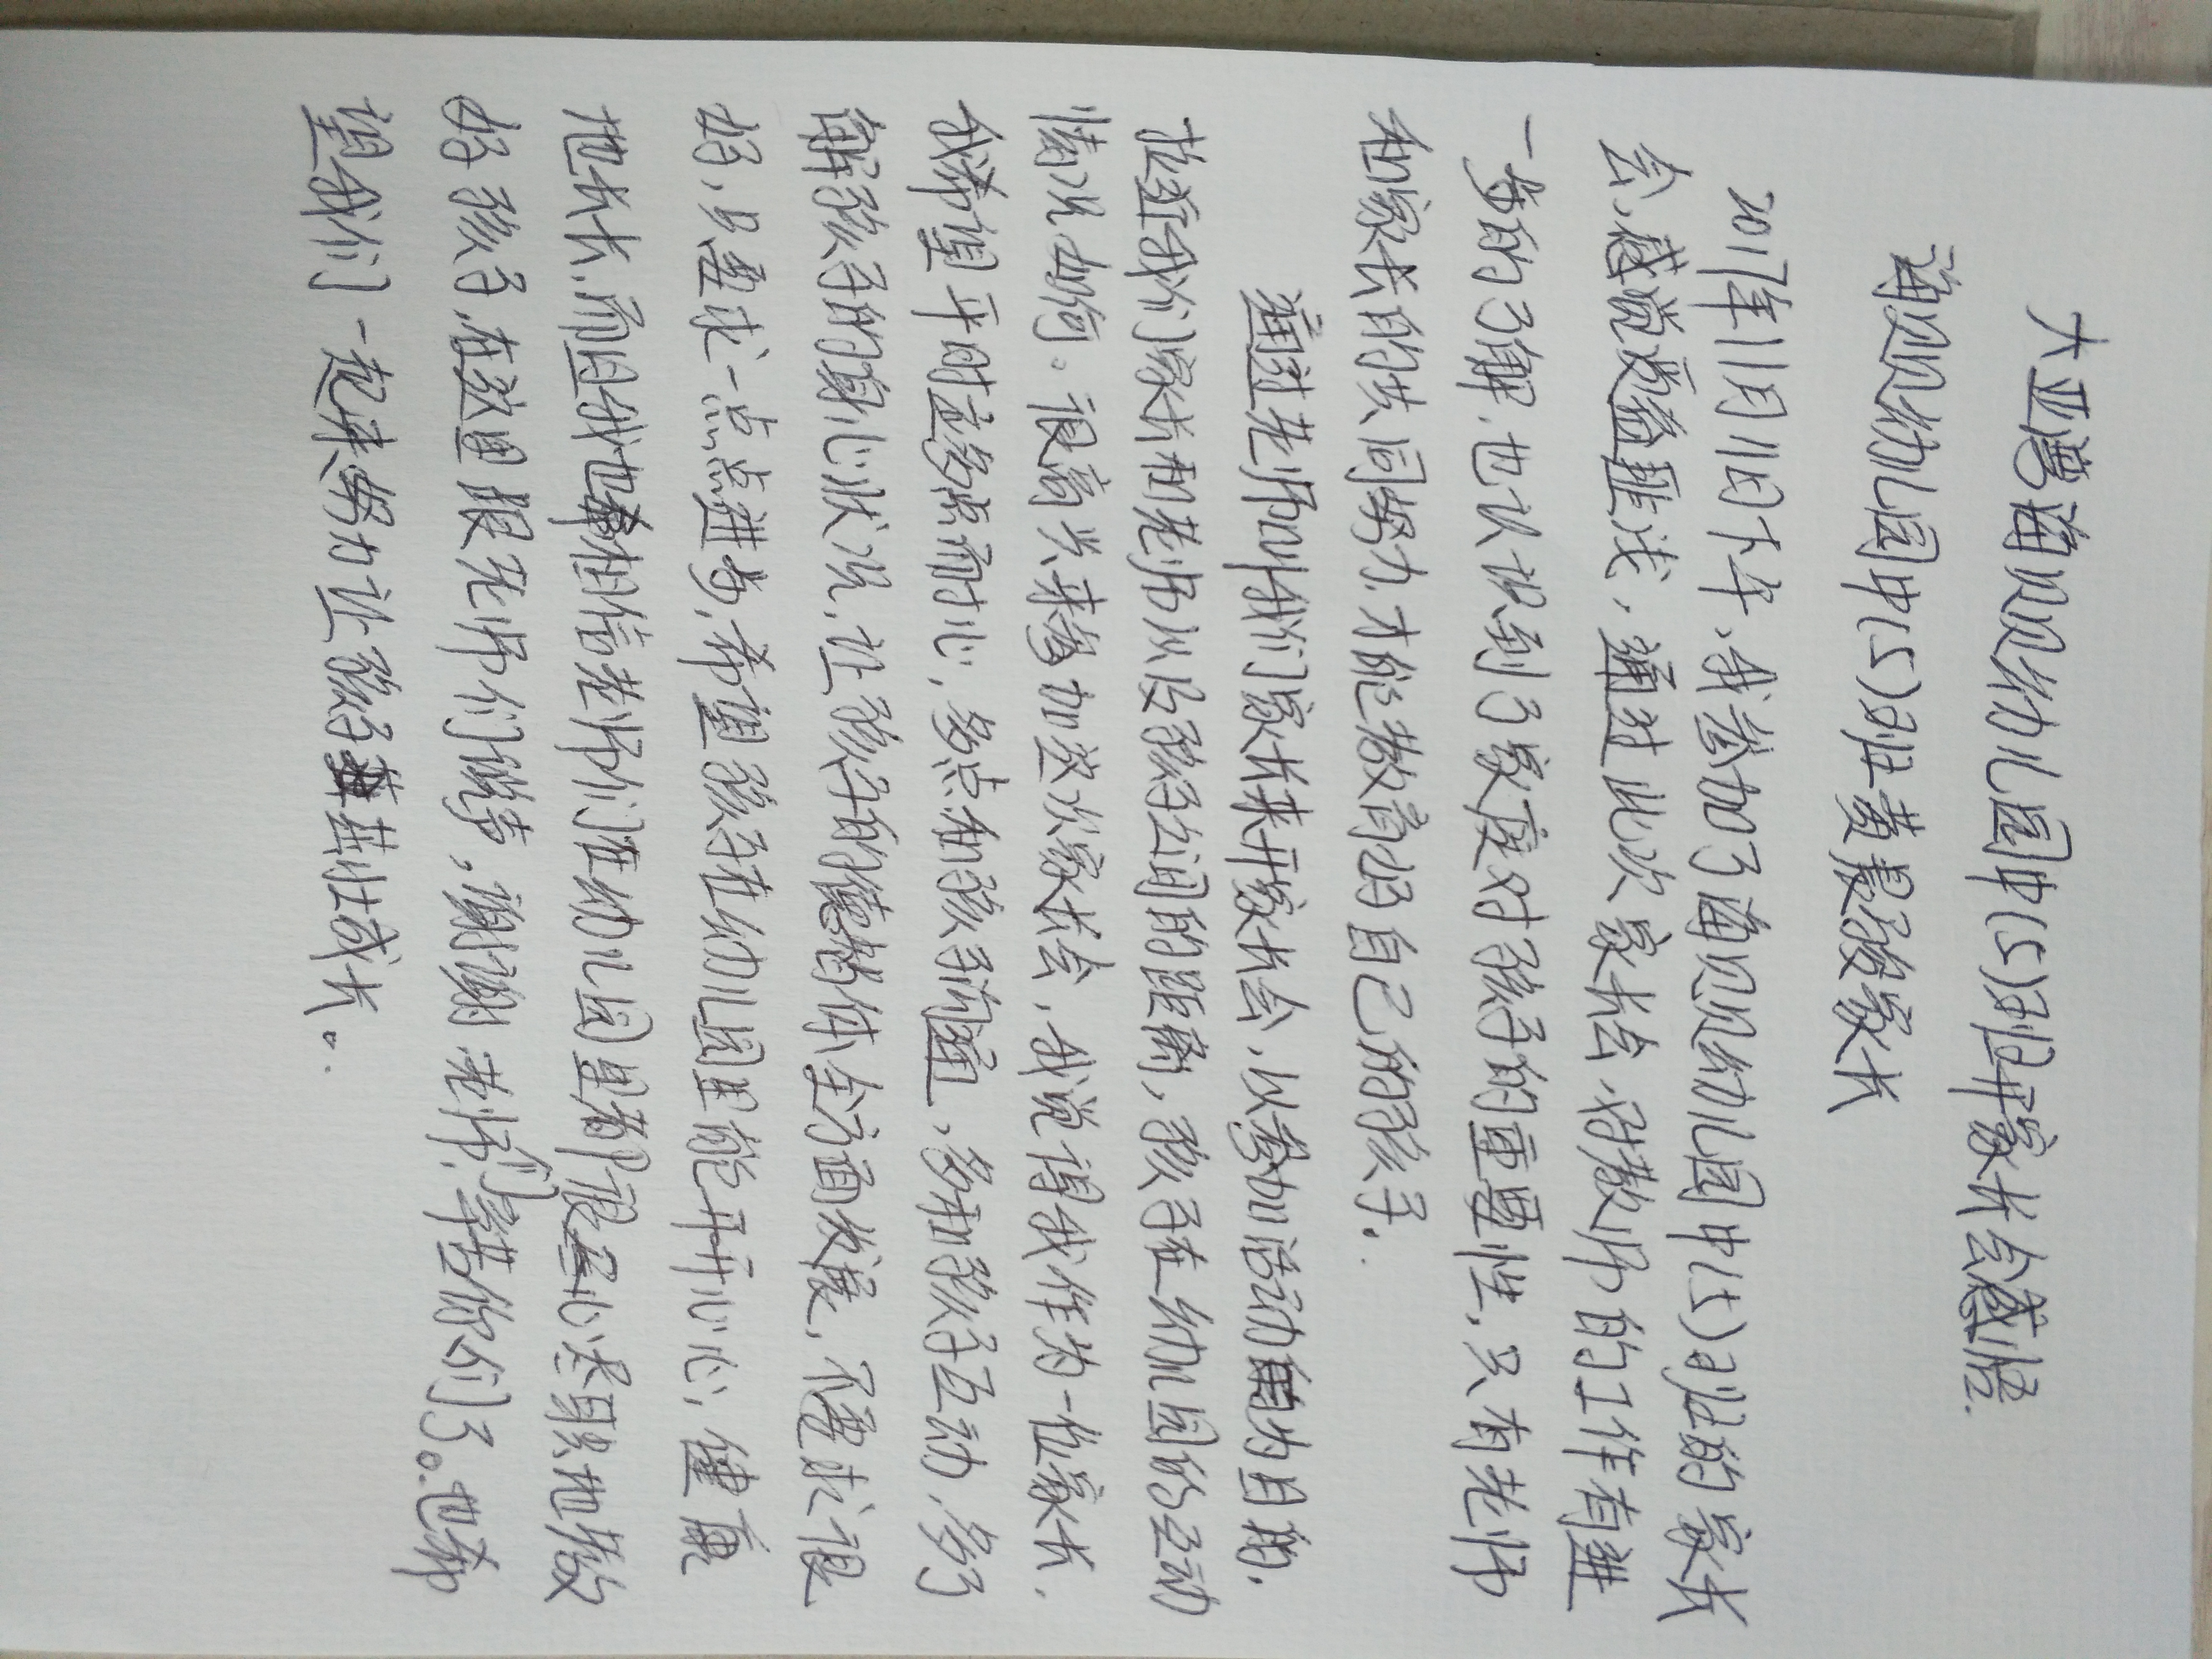 大亚湾海贝贝幼儿园中(5)班开家长会感悟.
海贝贝幼儿园中(5)班黄晨家长
2017年11月11日下午,我参加了海贝贝幼儿园中(5)班的家长
会,感觉受益匪浅,通过此次家长会,对教师的工作有进
一步的了解,也认识到了家庭对孩子的重要性,只有老师
和家长的共同努力,才能教育好自己的孩子.
通过老师叫我们家长来开家长会,以参加活动为目的.
拉近我们家长和老师以及孩子之间的距离,孩子在幼儿园的互动
情况如何。很高兴来参加这次家长会,我觉得我作为一位家长.
我希望平时应多点耐心,多点和孩子沟通、多和孩子互动,多了
解孩子的身心状况,让孩子的德智体全方面发展,不要求很
好,只要求一点点进步,希望孩子在幼儿园里能开开心心,健康
地成长,而且我也相信老师们在幼儿园里都很尽心尽职地教
好孩子,在这里跟老师们说声,谢谢老师们,辛苦你们了。也希
望我们一起来努力让孩子茁壮成长。